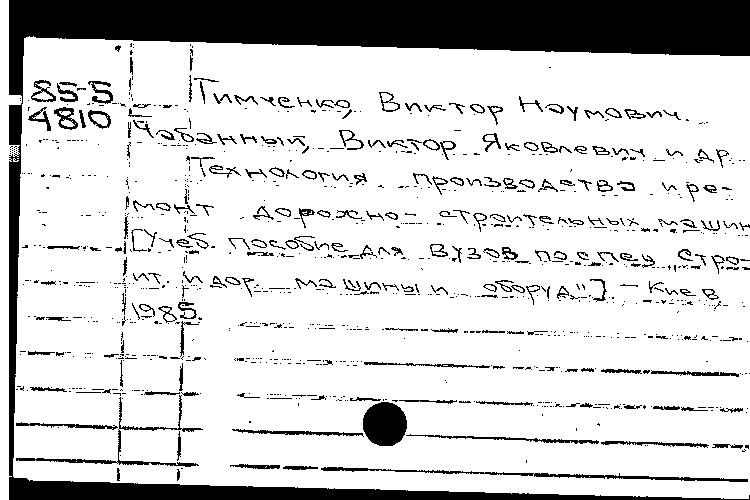 85-5
4810
Тимченко, Виктор Наумович.
Чабанный, Виктор Яковлевич и др
Технология производства и ре-
монт дорожно-строительных машин
[Учеб. пособие для вузов по спец „Стро-
ит. и дор. машины и оборуд"] - Киев
1985.